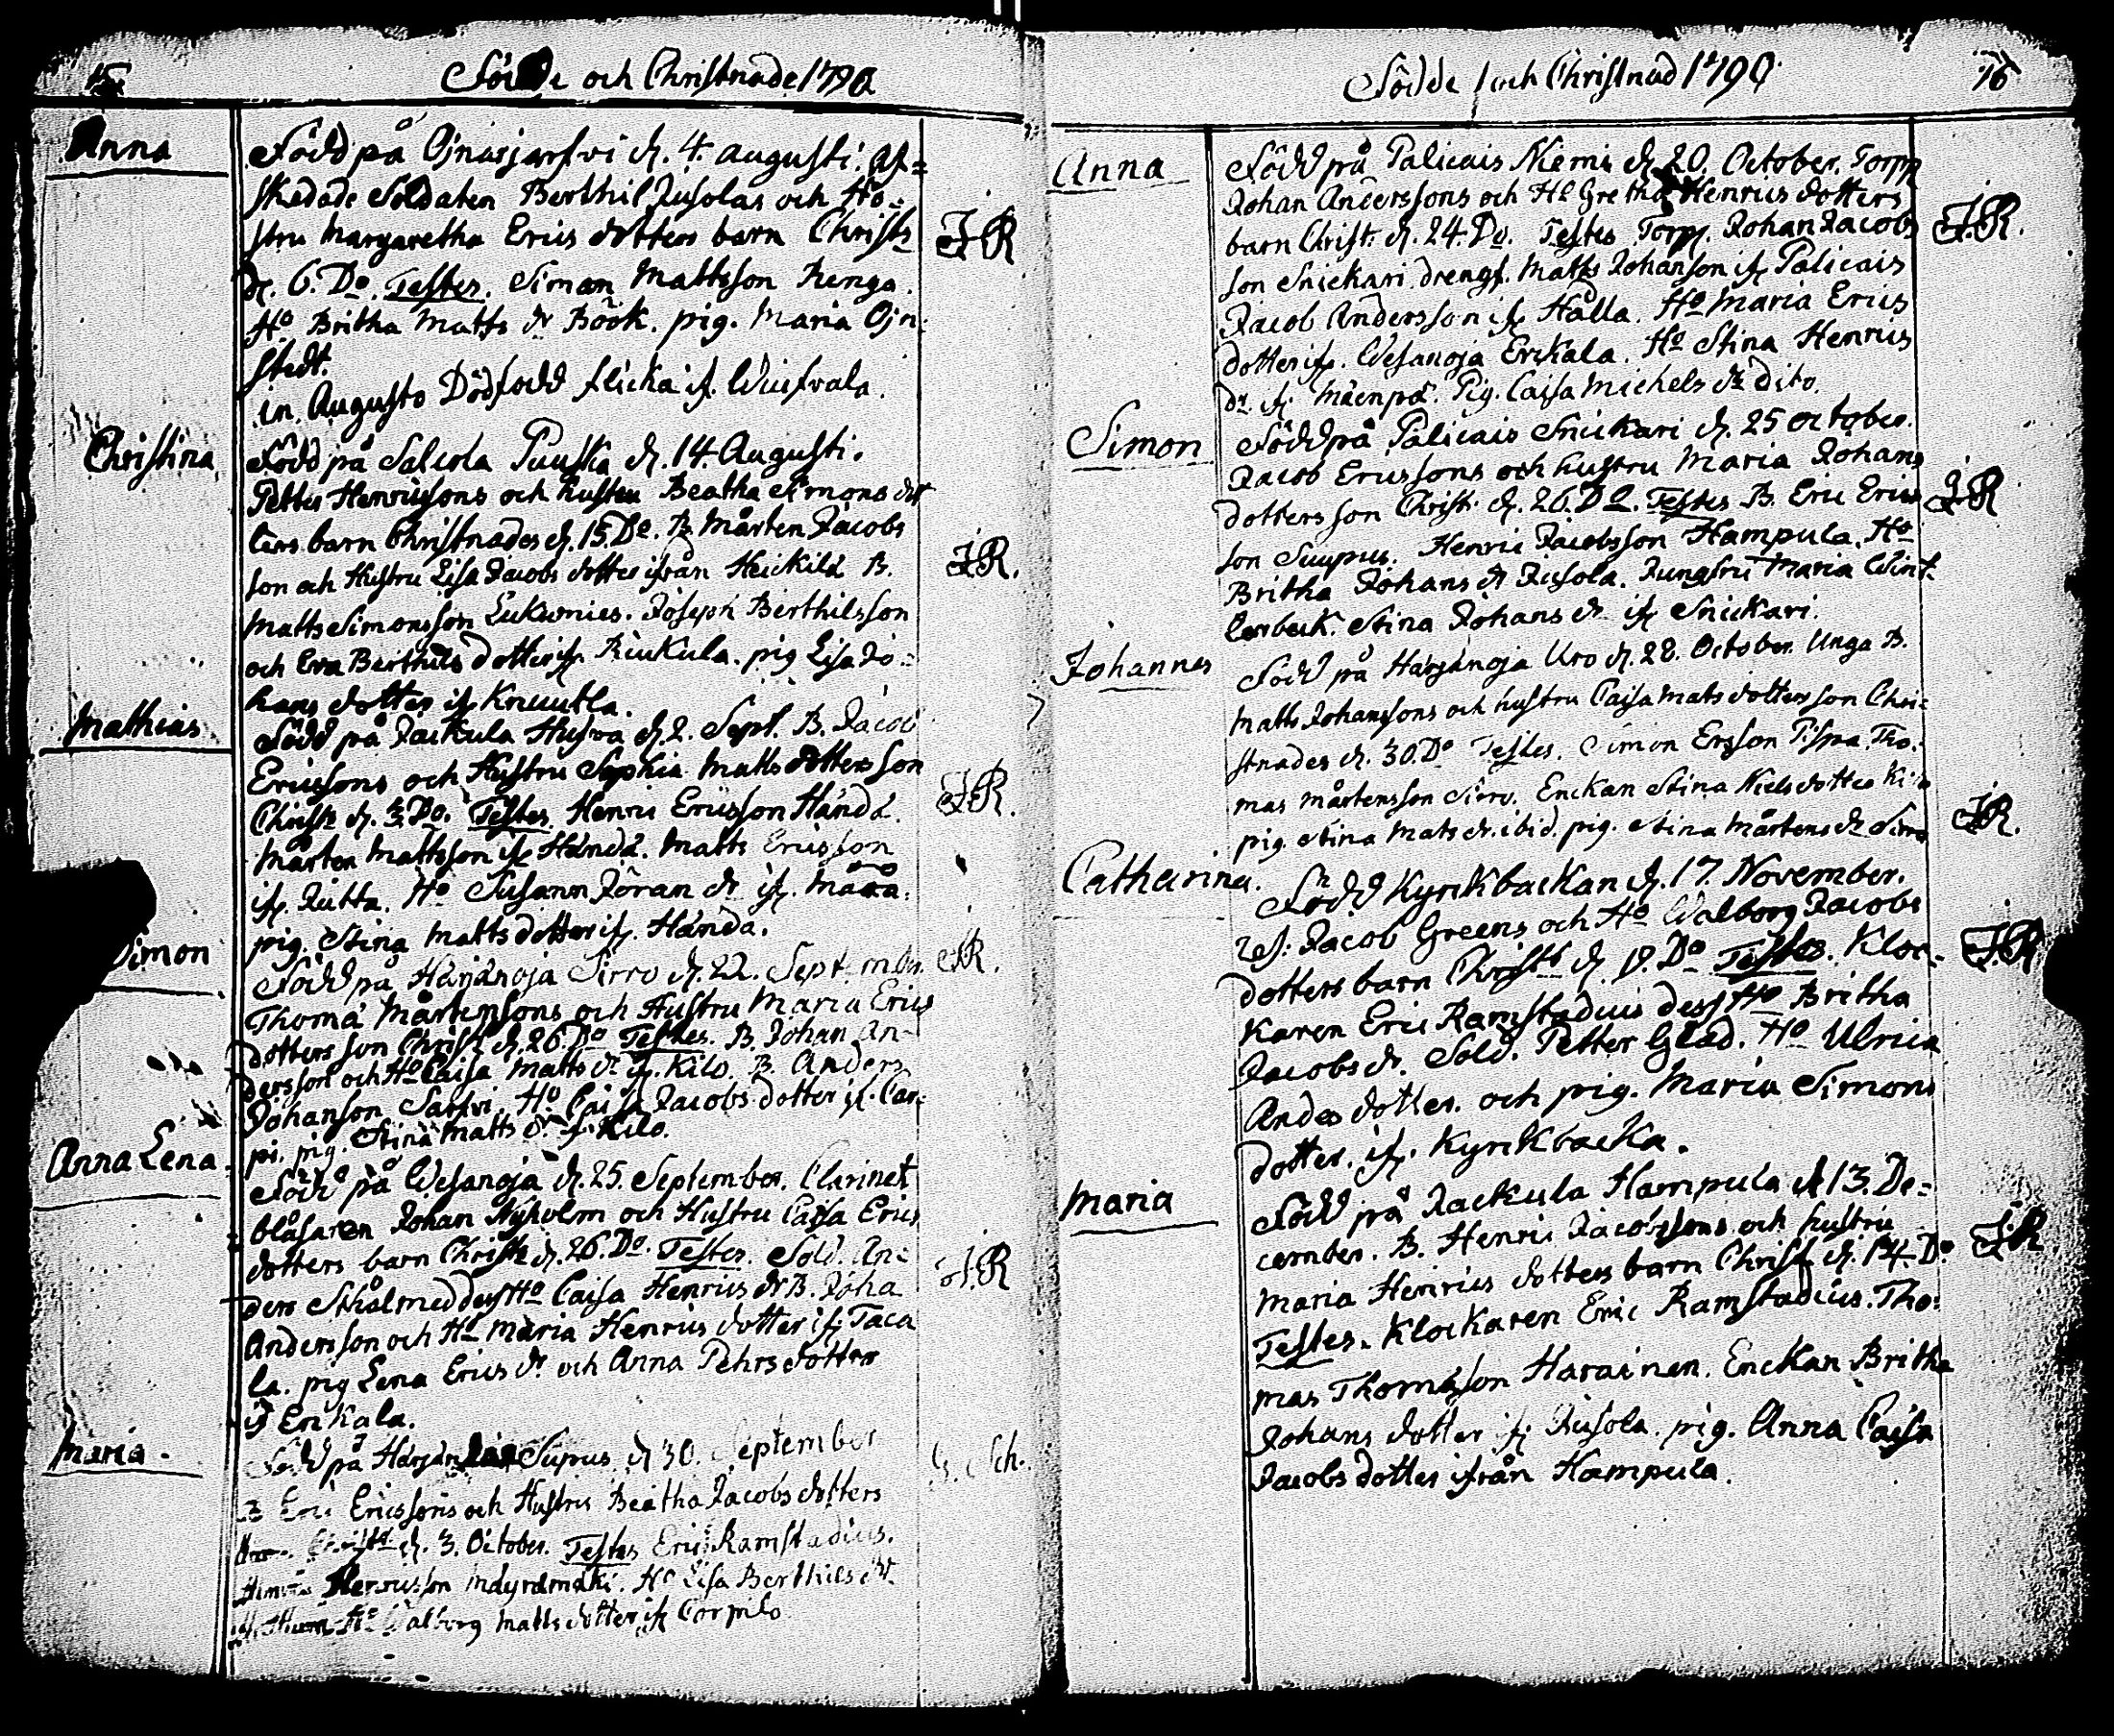 Födde och Christnade 1790
Anna
Född på Ojnasjarfvi d. 4. augusti. Af-
skedade Soldaten Berthil Jusolas och Hu-
stru Margaretha Erics dotters barn Christn
d. 6. Do. Testes. Siman Mattsson Renga.
Ho Britha Matts dr Böök. pig. Maria Ojn
stedt.
in Augusto Dödfödd flicka if. Wuifvala.
Christina
Född på Salcola Puuska d. 14. Augusti.
Petter Henricssons och hustru Beatha Simons dot
ters barn Christnades d. 15 Do. B Mårten Jacobs
son och Hustru Lisa Jacobs dotter ifrån Heickilä B.
Matts Simonsson Lukunies. Joseph Berthilsson
och Eva Berthils dotter if. Riukula. pig Lisa Jo-
hans dotter if Knuutla.
Mathias
Född på Jackula Husva d. 2. Sept. B. Jacob
Ericssons och Hustru Sophia Matts dotters son
Christn d. 3. Do. Testes Henric Ericsson Händä.
Mårten Mattsson if Händä. Matts Ericsson
if. Jutta. Ho Susanna Jöran dr if. Määrä.
pig. Stina Matts dotter if. Händä.
Simon
Född på Härjänoja Sirro d. 22. Septemb.
Thoma Mårtensons och Hustru Maria Erics
dotters son Christ d. 26. Do Testes. B. Johan An-
dersson och Ho Caisa Matts dr if. Kilo. B. Anders
Johanson Sarfvi. Ho Caisa Jacobs dotter if. Car-
pi. pig. Stina Matts dr if. Kilo.
Anna Lena
Född på Wesanoja d. 25. September. Clarinet
blåsaren Johan Nyholm och Hustru Caisa Erics
dotters barn Christn d. 26. Do. Testes. Sold. An-
ders Sthål med dess Ho Caisa Henrics dr B. Joha
Andersson och Ho Maria Henrics dotter if Taca
la. pig Lena Erics dr och Anna Pehrs dotter
if Erkala.
Maria
Född på Supus d. 30. September
B Eric Ericssons och Hustru Beatha Jacobs dotters
Christn d. 3. October. Testes Eric Ramstadius.
Henricsson Ho Lisa Berthils dr
Ho Walborg Matts dotter if Corpilo
J.R
J.R.
J.R.
J.R.
J.R
Sch.
Födde och Christnad 1790
76
Anna
Född på Palicais Niemi d. 20. October. Torp
Johan Anderssons och Ho Gretha Henrics dotters
barn Christ: d. 24. Do. Testes Torp. Johan Jacobs
son Snickari. drengf. Matts Johanson if Palicais
Jacob Andersson if Hålla. Ho Maria Erics
dotter if. Wesanoja Erckala. Ho Stina Henrics
dr if Mäenpä. Pig. Caisa Michels dr dito.
Simon
Född på Palicais Snickari d. 25 october.
Jacob Ericssons och hustru Maria Johans
dotters son Christ. d. 26. Do. Testes B. Eric Erics
son Suupus. Henric Jacobsson Hampula. Ho
Britha Johans dr Jusola. Jungfru Maria Wint-
terbeck. Stina Johans dr if Snickari.
Johannes
Född på Harjänoja Uro d. 28. October Unga B.
Matts Johanssons och hustru Caisa Mats dotters son Chri-
stnades d. 30. Do Testes. Simon Ersson Pispa. Tho-
mas Mårtensson Sirro. Enckan Stina Niels dotter
pig. Stina Mats dr. ibid. pig. Stina Mårtens dr Sirro
Catharina.
Född Kyrckbackan d. 17. November.
ref: Jacob Greens och Ho Walborg Jacobs
dotters barn Christn d Do Testes. Kloc-
karen Eric Ramstadius dess Ho Britha
Jacobs dr. Sold. Petter Glad. Ho Ulrica
Anders dotter. och pig. Maria Simons
dotter. if. Kyrckbacka.
Maria
Född på Jackula Hampula d 13. De-
cember. B. Henric Jacobssons och hustru
Maria Henrics dotters barn Christ. d. 14. Do
Testes. Klockaren Eric Ramstadius. Tho-
mas Thomasson Harainen. Enckan Britha
Johans dotter if Jusola. pig. Anna Caisa
Jacobs dotter ifrån Hampula.
J.R.
J.R
J.R.
J.R
J.R